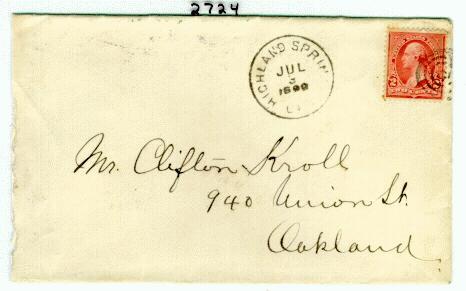 2724
HIGHLAND SPRIN
JUL
3
Mr. Clifton Kroll
940 Union St.
Oakland